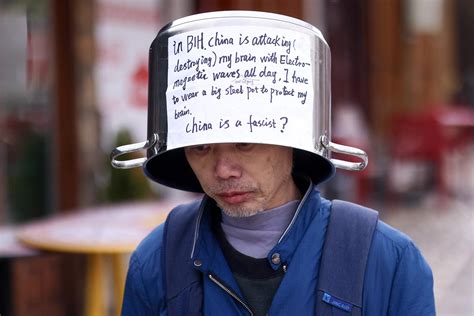 in BIH, China is attacking (
destroying) my brain with Electro-
magnetic waves all day, I have
to wear a big steel pot to protect my
brain.
China is a fascist?